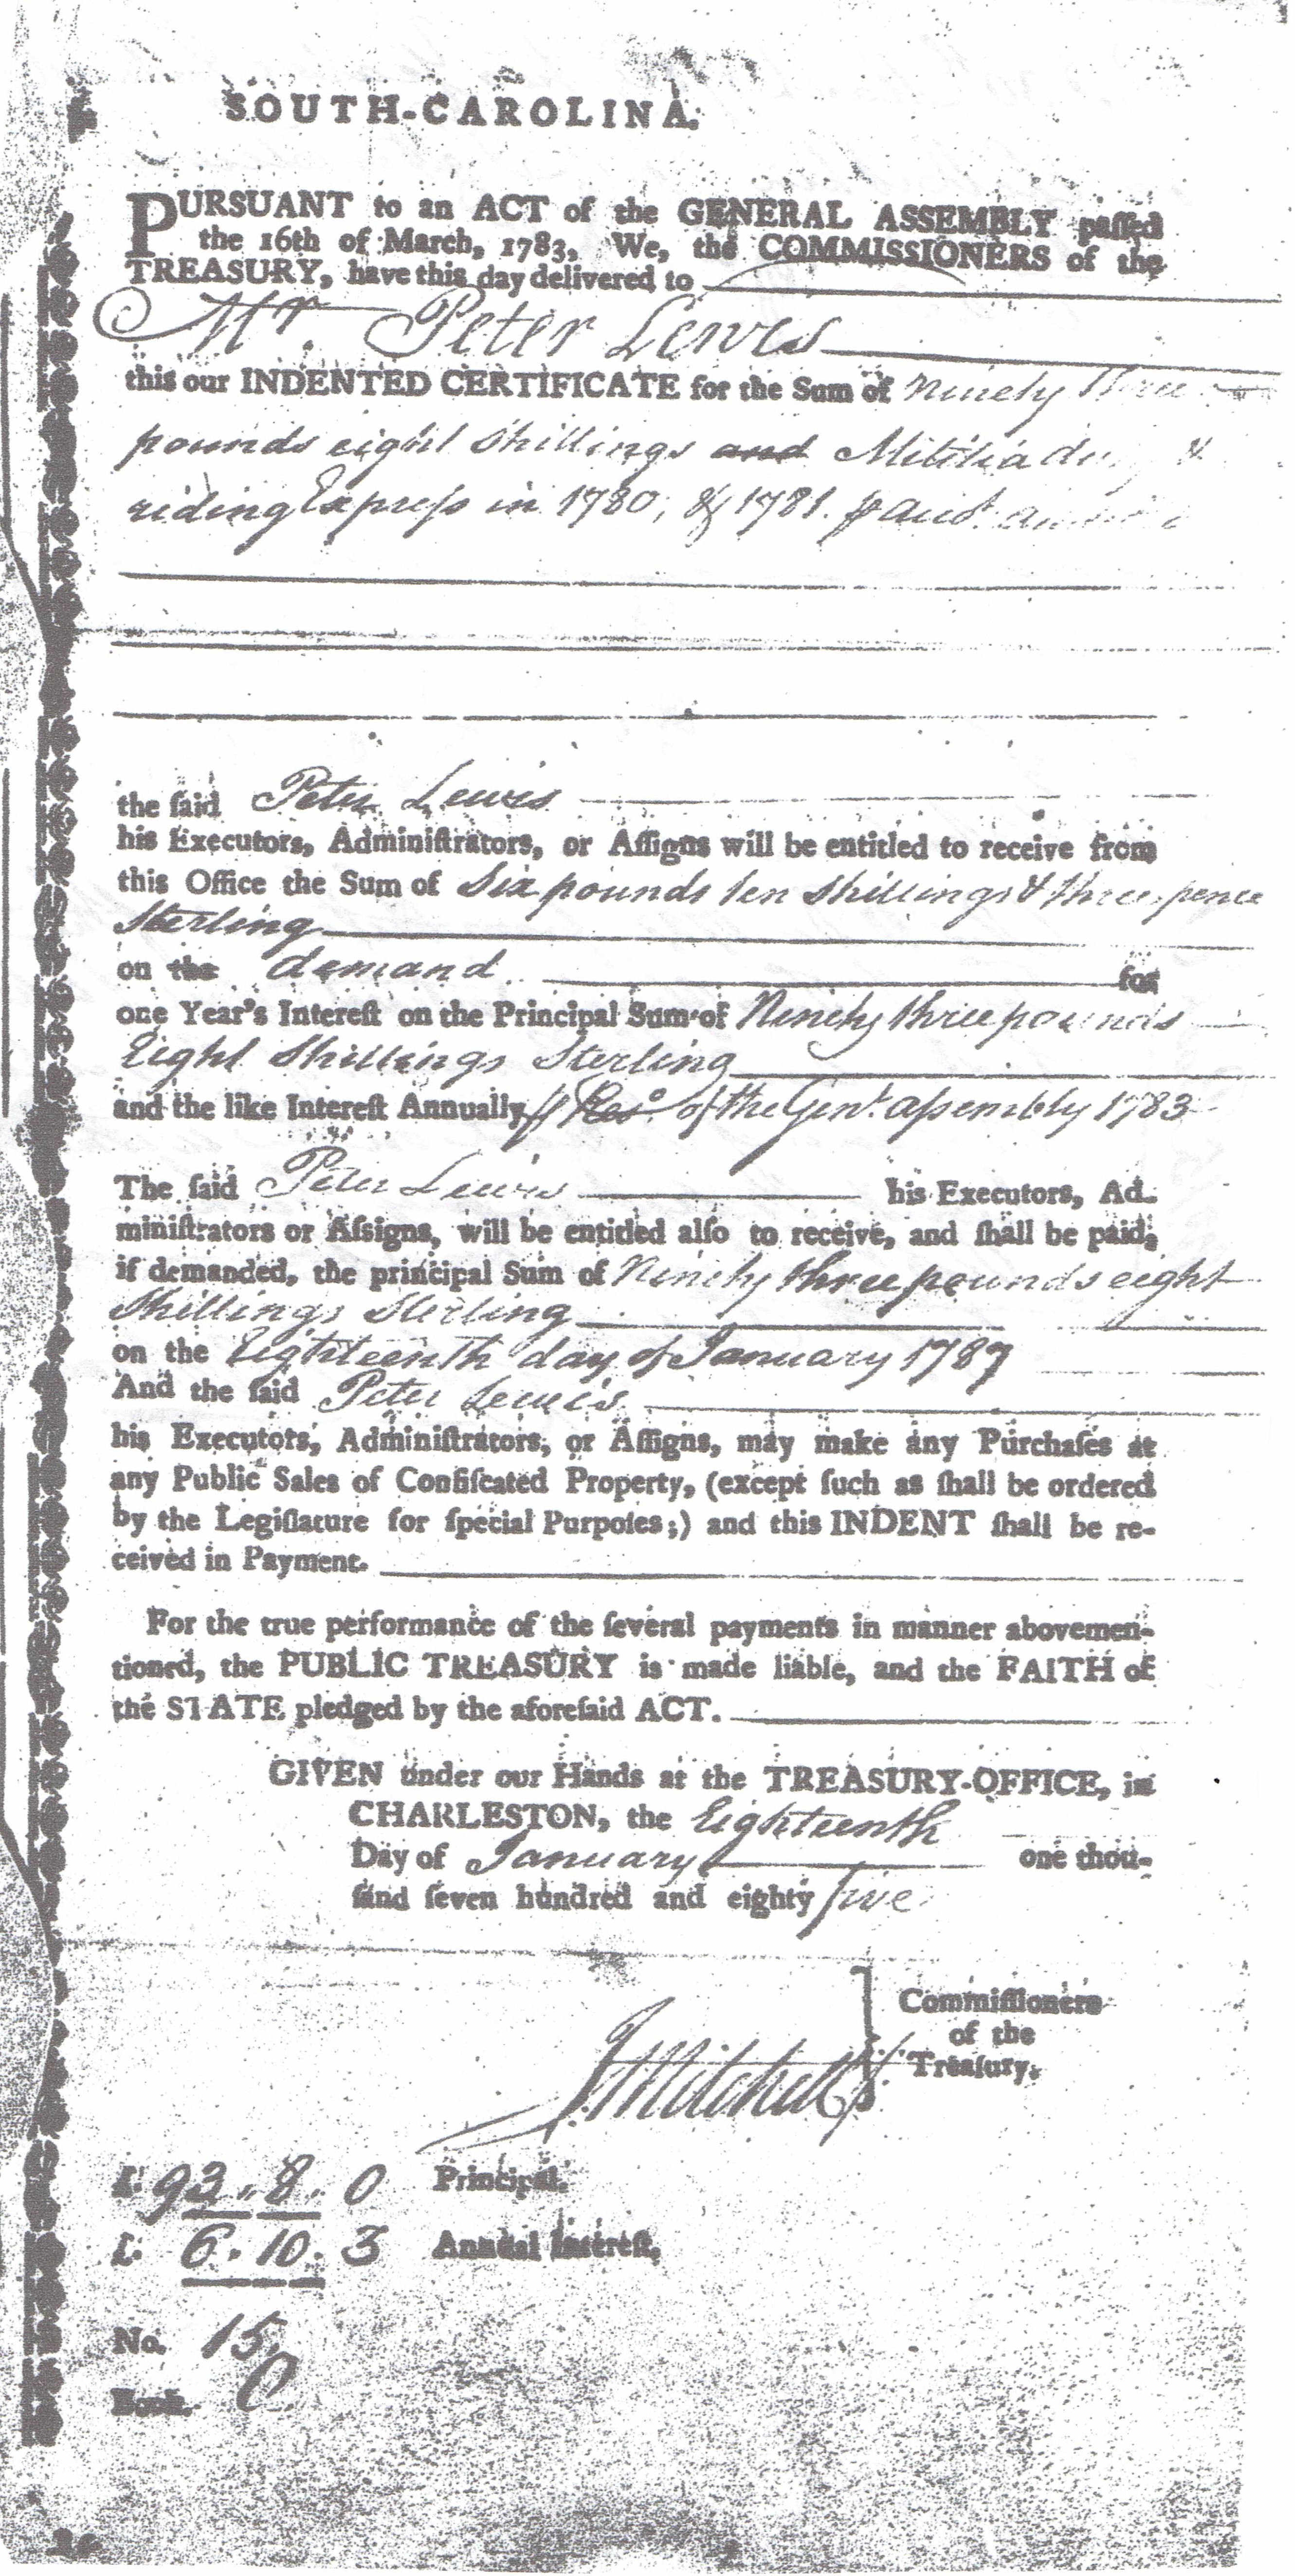 SOUTH-CAROLINA.
PURSUANT to an ACT of the GENERAL ASSEMBLY paſſed
the 16th of March, 1783, We, the COMMISSIONERS of the
TREASURY, have this day delivered to
Mr. Peter Lewis
this our INDENTED CERTIFICATE for the Sum of Ninety three
pounds eight Shillings and Militia &
riding Expreſs in 1780, & 1781. p Audt.
the ſaid Peter Lewis
his Executors, Adminiſtrators, or Aſſigns will be entitled to receive from
this Office the Sum of Six pounds ten Shillings & three pence
Sterling
on the demand for
one Year's Intereſt on the Principal Sum of Ninety three pounds
Eight Shillings Sterling
and the like Intereſt Annually p Reso. of the Genl. aſsembly 1783
The ſaid Peter Lewis his Executors, Ad-
miniſtrators or Aſsigns, will be entitled alſo to receive, and ſhall be paid,
if demanded, the principal Sum of Ninety three pounds eight
Shillings Sterling
on the Eighteenth day of January 1787
And the ſaid Peter Lewis
his Executors, Adminiſtrators, or Aſſigns, may make any Purchaſes at
any Public Sales of Confiſcated Property, (except ſuch as ſhall be ordered
by the Legiſlature for ſpecial Purpoſes;) and this INDENT ſhall be re-
ceived in Payment.
For the true performance of the ſeveral payments in manner abovemen-
tioned, the PUBLIC TREASURY is made liable, and the FAITH of
the STATE pledged by the aforeſaid ACT.
GIVEN under our Hands at the TREASURY-OFFICE, in
CHARLESTON, the Eighteenth
Day of January one thou-
ſand ſeven hundred and eighty five
Commiſſioners
of the
Treaſury.
J Mitchell
£. 93. 8. 0 Principal.
£. 6. 10. 3 Annual Intereſt.
No. 15,
Book. O